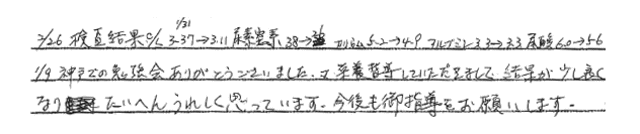 1/31
2/26 検査結果 3.37→3.11 尿素窒素 38→ カリウム5.2→4.9 アルブミン3.3→3.3 尿酸6.0→5.6
1/9 の勉強会ありがとうございました。又栄養指導していただきまして結果が少し良く
なり たいへんうれしく思っています。今後も御指導をお願いします。